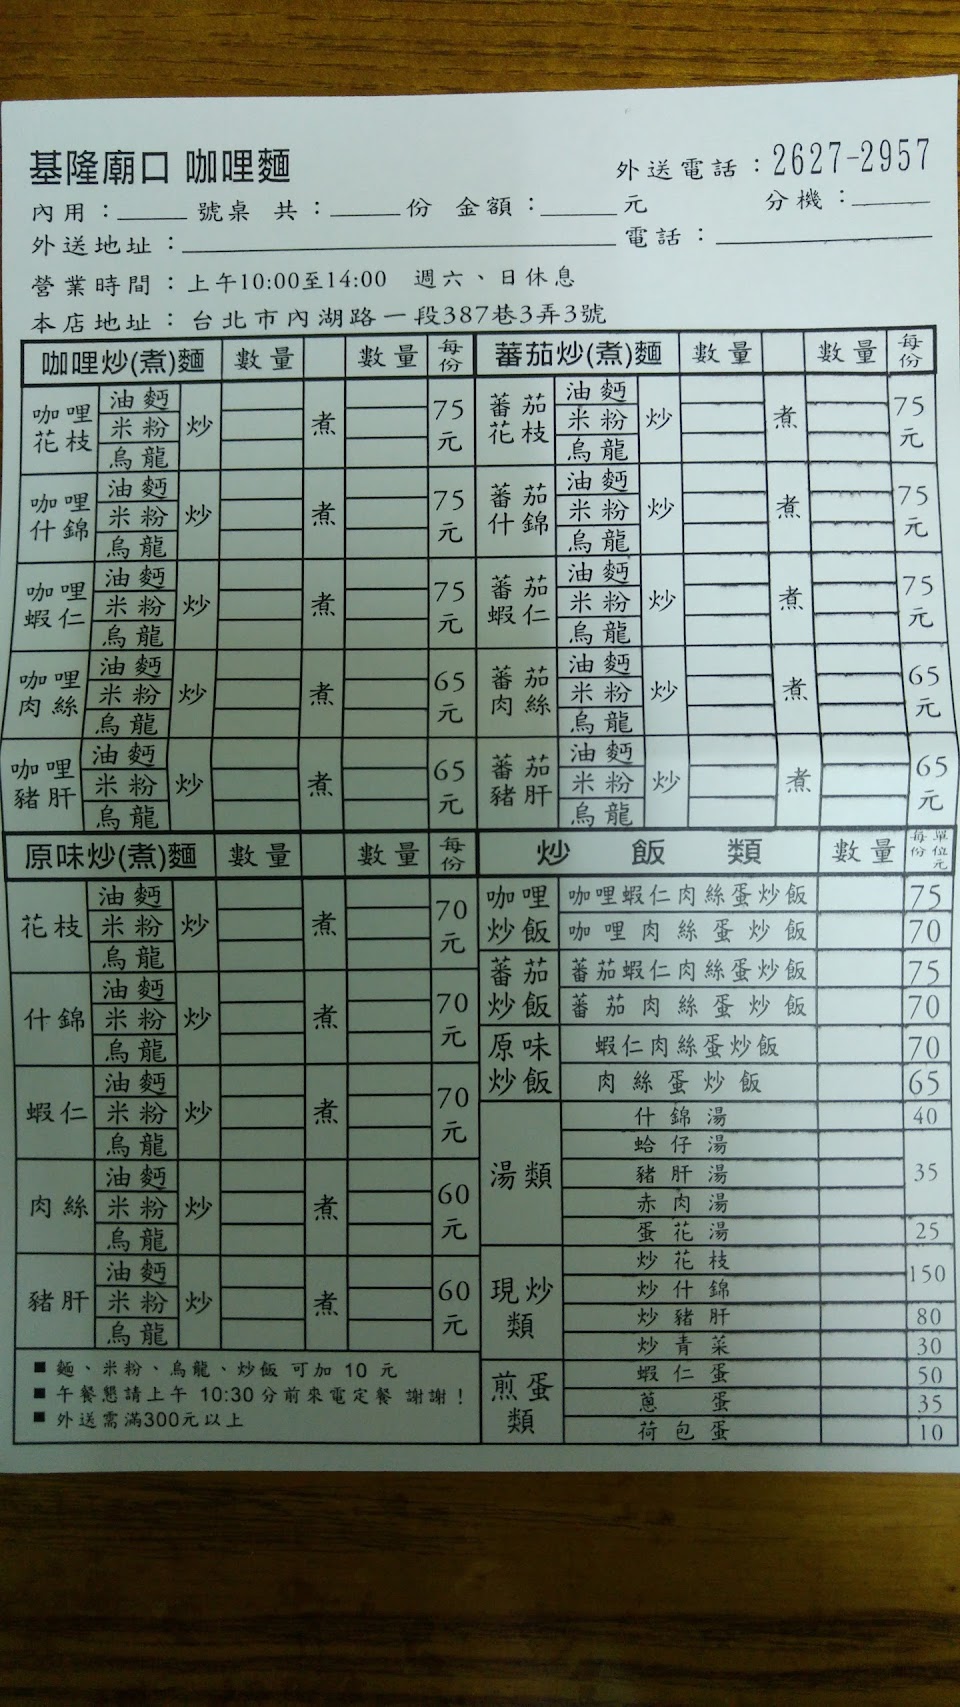 基隆廟口 咖哩麵
外送電話：2627-2957
內用：______號桌 共：______份 金額：______元 分機：______
外送地址：______ 電話：______
營業時間：上午10:00至14:00 週六、日休息
本店地址：台北市內湖路一段387巷3弄3號
咖哩炒(煮)麵 數量 數量 每份
咖哩花枝 油麪 米粉 烏龍 炒 煮 75元
咖哩什錦 油麪 米粉 烏龍 炒 煮 75元
咖哩蝦仁 油麪 米粉 烏龍 炒 煮 75元
咖哩肉絲 油麪 米粉 烏龍 炒 煮 65元
咖哩豬肝 油麪 米粉 烏龍 炒 煮 65元
蕃茄炒(煮)麵 數量 數量 每份
蕃茄花枝 油麪 米粉 烏龍 炒 煮 75元
蕃茄什錦 油麪 米粉 烏龍 炒 煮 75元
蕃茄蝦仁 油麪 米粉 烏龍 炒 煮 75元
蕃茄肉絲 油麪 米粉 烏龍 炒 煮 65元
蕃茄豬肝 油麪 米粉 烏龍 炒 煮 65元
原味炒(煮)麵 數量 數量 每份
花枝 油麪 米粉 烏龍 炒 煮 70元
什錦 油麪 米粉 烏龍 炒 煮 70元
蝦仁 油麪 米粉 烏龍 炒 煮 70元
肉絲 油麪 米粉 烏龍 炒 煮 60元
豬肝 油麪 米粉 烏龍 炒 煮 60元
■ 麵、米粉、烏龍、炒飯 可加 10 元
■ 午餐懇請上午 10:30 分前來電定餐 謝謝！
■ 外送需滿300元以上
炒飯類 數量 每份 單位元
咖哩炒飯 咖哩蝦仁肉絲蛋炒飯 75
咖哩肉絲蛋炒飯 70
蕃茄炒飯 蕃茄蝦仁肉絲蛋炒飯 75
蕃茄肉絲蛋炒飯 70
原味炒飯 蝦仁肉絲蛋炒飯 70
肉絲蛋炒飯 65
湯類 什錦湯 40
蛤仔湯
豬肝湯 35
赤肉湯
蛋花湯 25
現炒類 炒花枝 150
炒什錦
炒豬肝 80
炒青菜 30
煎蛋類 蝦仁蛋 50
蔥蛋 35
荷包蛋 10